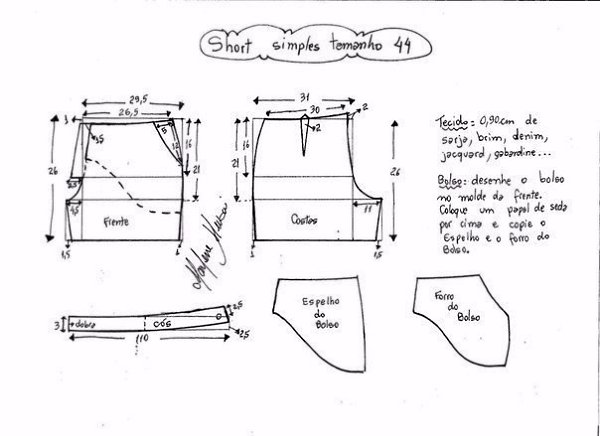 Short simples tamanho 44
29,5
26,5
1
3,5
5
12
16
21
26
2,5
4,5
Frente
1,5
1
31
30
2
2
16
21
26
11
Costas
1
1,5
Tecido: 0,90cm de
sarja, brim, denim,
jacquard, gabardine...
Bolso: desenhe o bolso
no molde da frente.
Coloque um papel de seda
por cima e copie o
Espelho e o forro do
Bolso.
3
dobra
cós
2,5
2,5
110
Espelho
do
Bolso
Forro
do
Bolso